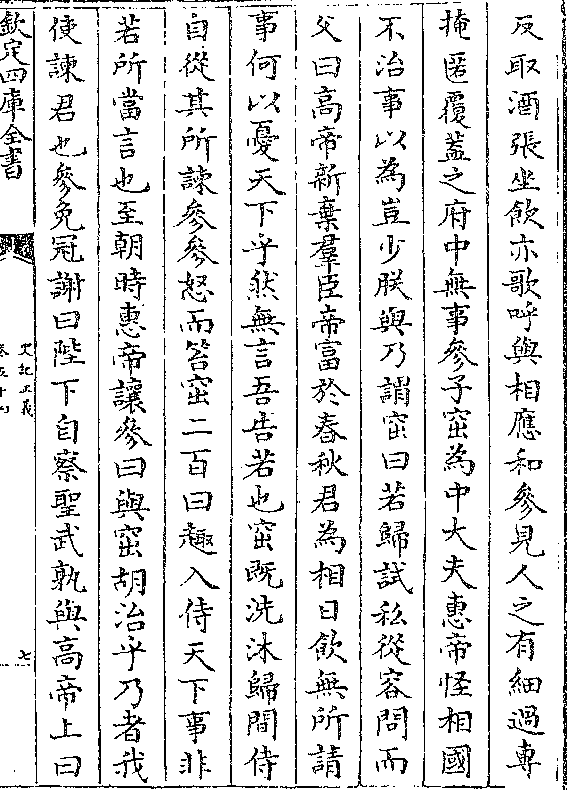 反取酒張坐飲亦歌呼與相應和參見人之有細過專
掩匿覆葢之府中無事參子窋為中大夫惠帝怪相國
不治事以為豈少朕與乃謂窋曰若歸試私從容問而
父曰高帝新棄羣臣帝富於春秋君為相日飲無所請
事何以憂天下乎然無言吾告若也窋既洗沐歸閒侍
自從其所諫參參怒而笞窋二百曰趣入侍天下事非
若所當言也至朝時惠帝讓參曰與窋胡治乎乃者我
使諫君也參免冠謝曰陛下自察聖武孰與高帝上曰
欽定四庫全書
史記正義
七